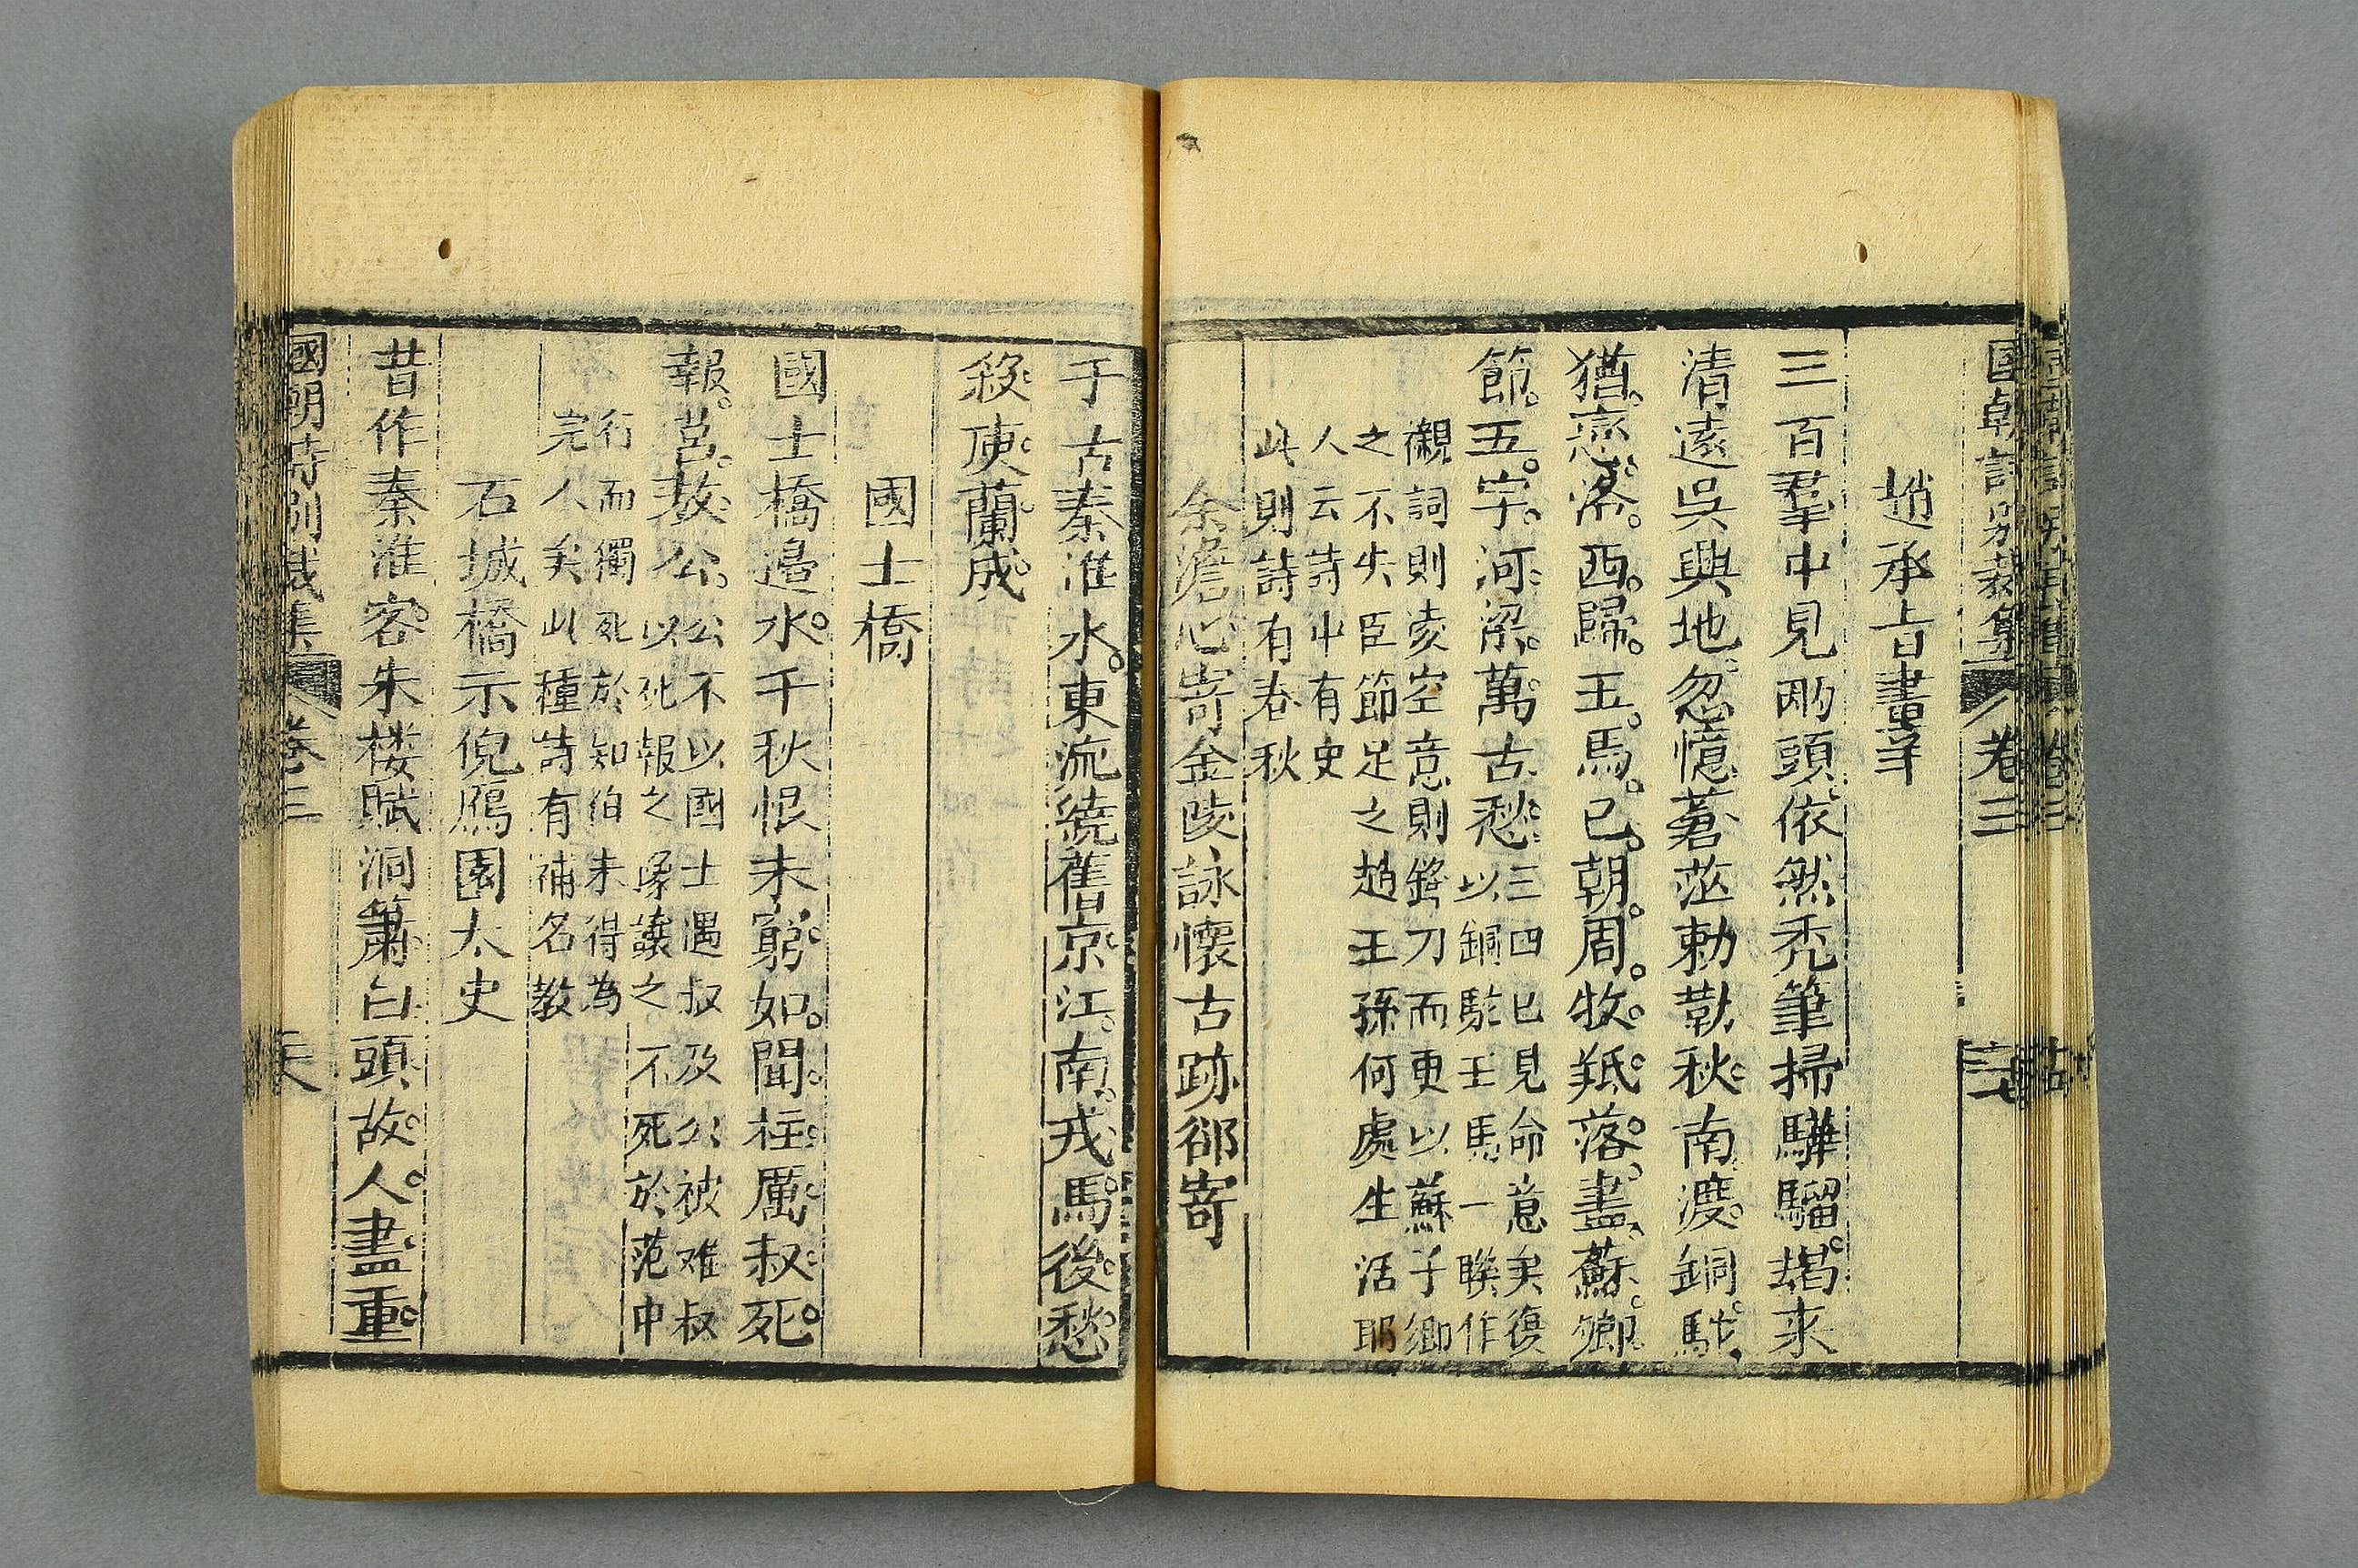 國朝詩別裁集 卷三 三七
趙承旨畫羊
三百羣中見兩頭依然禿筆掃驊騮朅來
清遠吳興地忽憶蒼茫勅勒秋南渡銅駝
猶戀洛西歸玉馬已朝周牧羝落盡蘇卿
節五字河梁萬古愁三四已見命意矣復
以銅駝王馬一聯作
襯詞則凌空意則鋒刀而更以蘇子卿
之不失臣節足之趙王孫何處生活耶
人云詩中有史
此則詩有春秋
余澹心寄金陵詠懷古跡卻寄
千古秦淮水東流繞舊京江南戎馬後愁
殺庾蘭成
國士橋
國士橋邉水千秋恨未窮如聞柱厲叔死
報莒敖公公不以國士遇叔及公被难叔
以死報之豫讓之不死於范中
行而獨死於知伯未得為
完人矣此種詩有補名教
石城橋示倪鴈園太史
昔作秦淮客朱楼賦洞簫白頭故人盡重
國朝詩別裁集 卷三 天